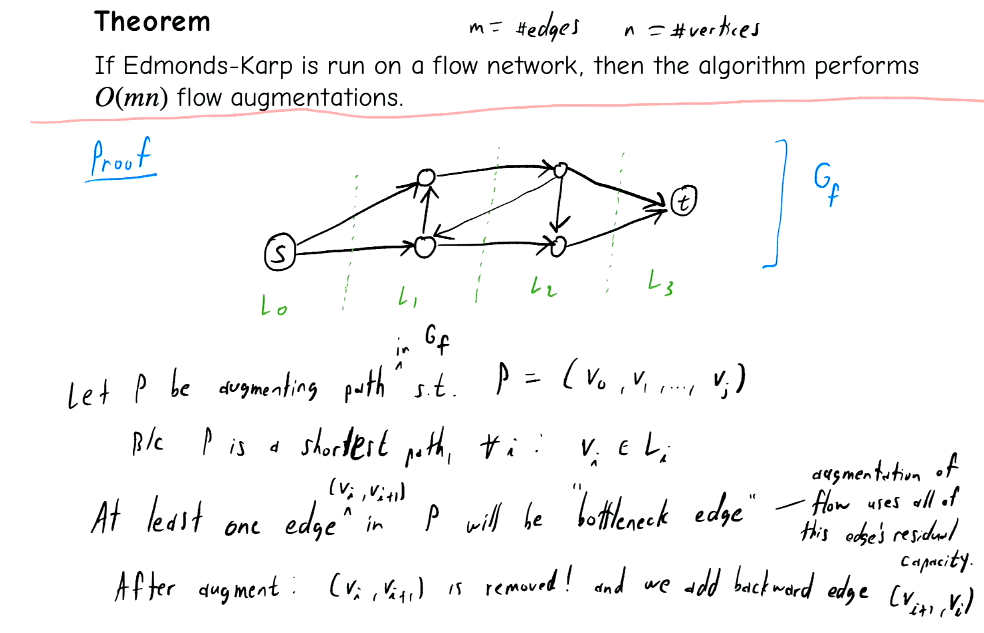 Theorem
m = #edges n = #vertices
If Edmonds-Karp is run on a flow network, then the algorithm performs
O(mn) flow augmentations.
Proof
G_f
s
t
L_0 L_1 L_2 L_3
Let P be augmenting path ^ in G_f s.t. P = (v_0, v_1, ..., v_j)
B/c P is a shortest path, ∀i : v_i ∈ L_i
At least one edge ^ (v_i, v_{i+1}) in P will be "bottleneck edge" — augmentation of
flow uses all of
this edge's residual
capacity.
After augment : (v_i, v_{i+1}) is removed! and we add backward edge (v_{i+1}, v_i)